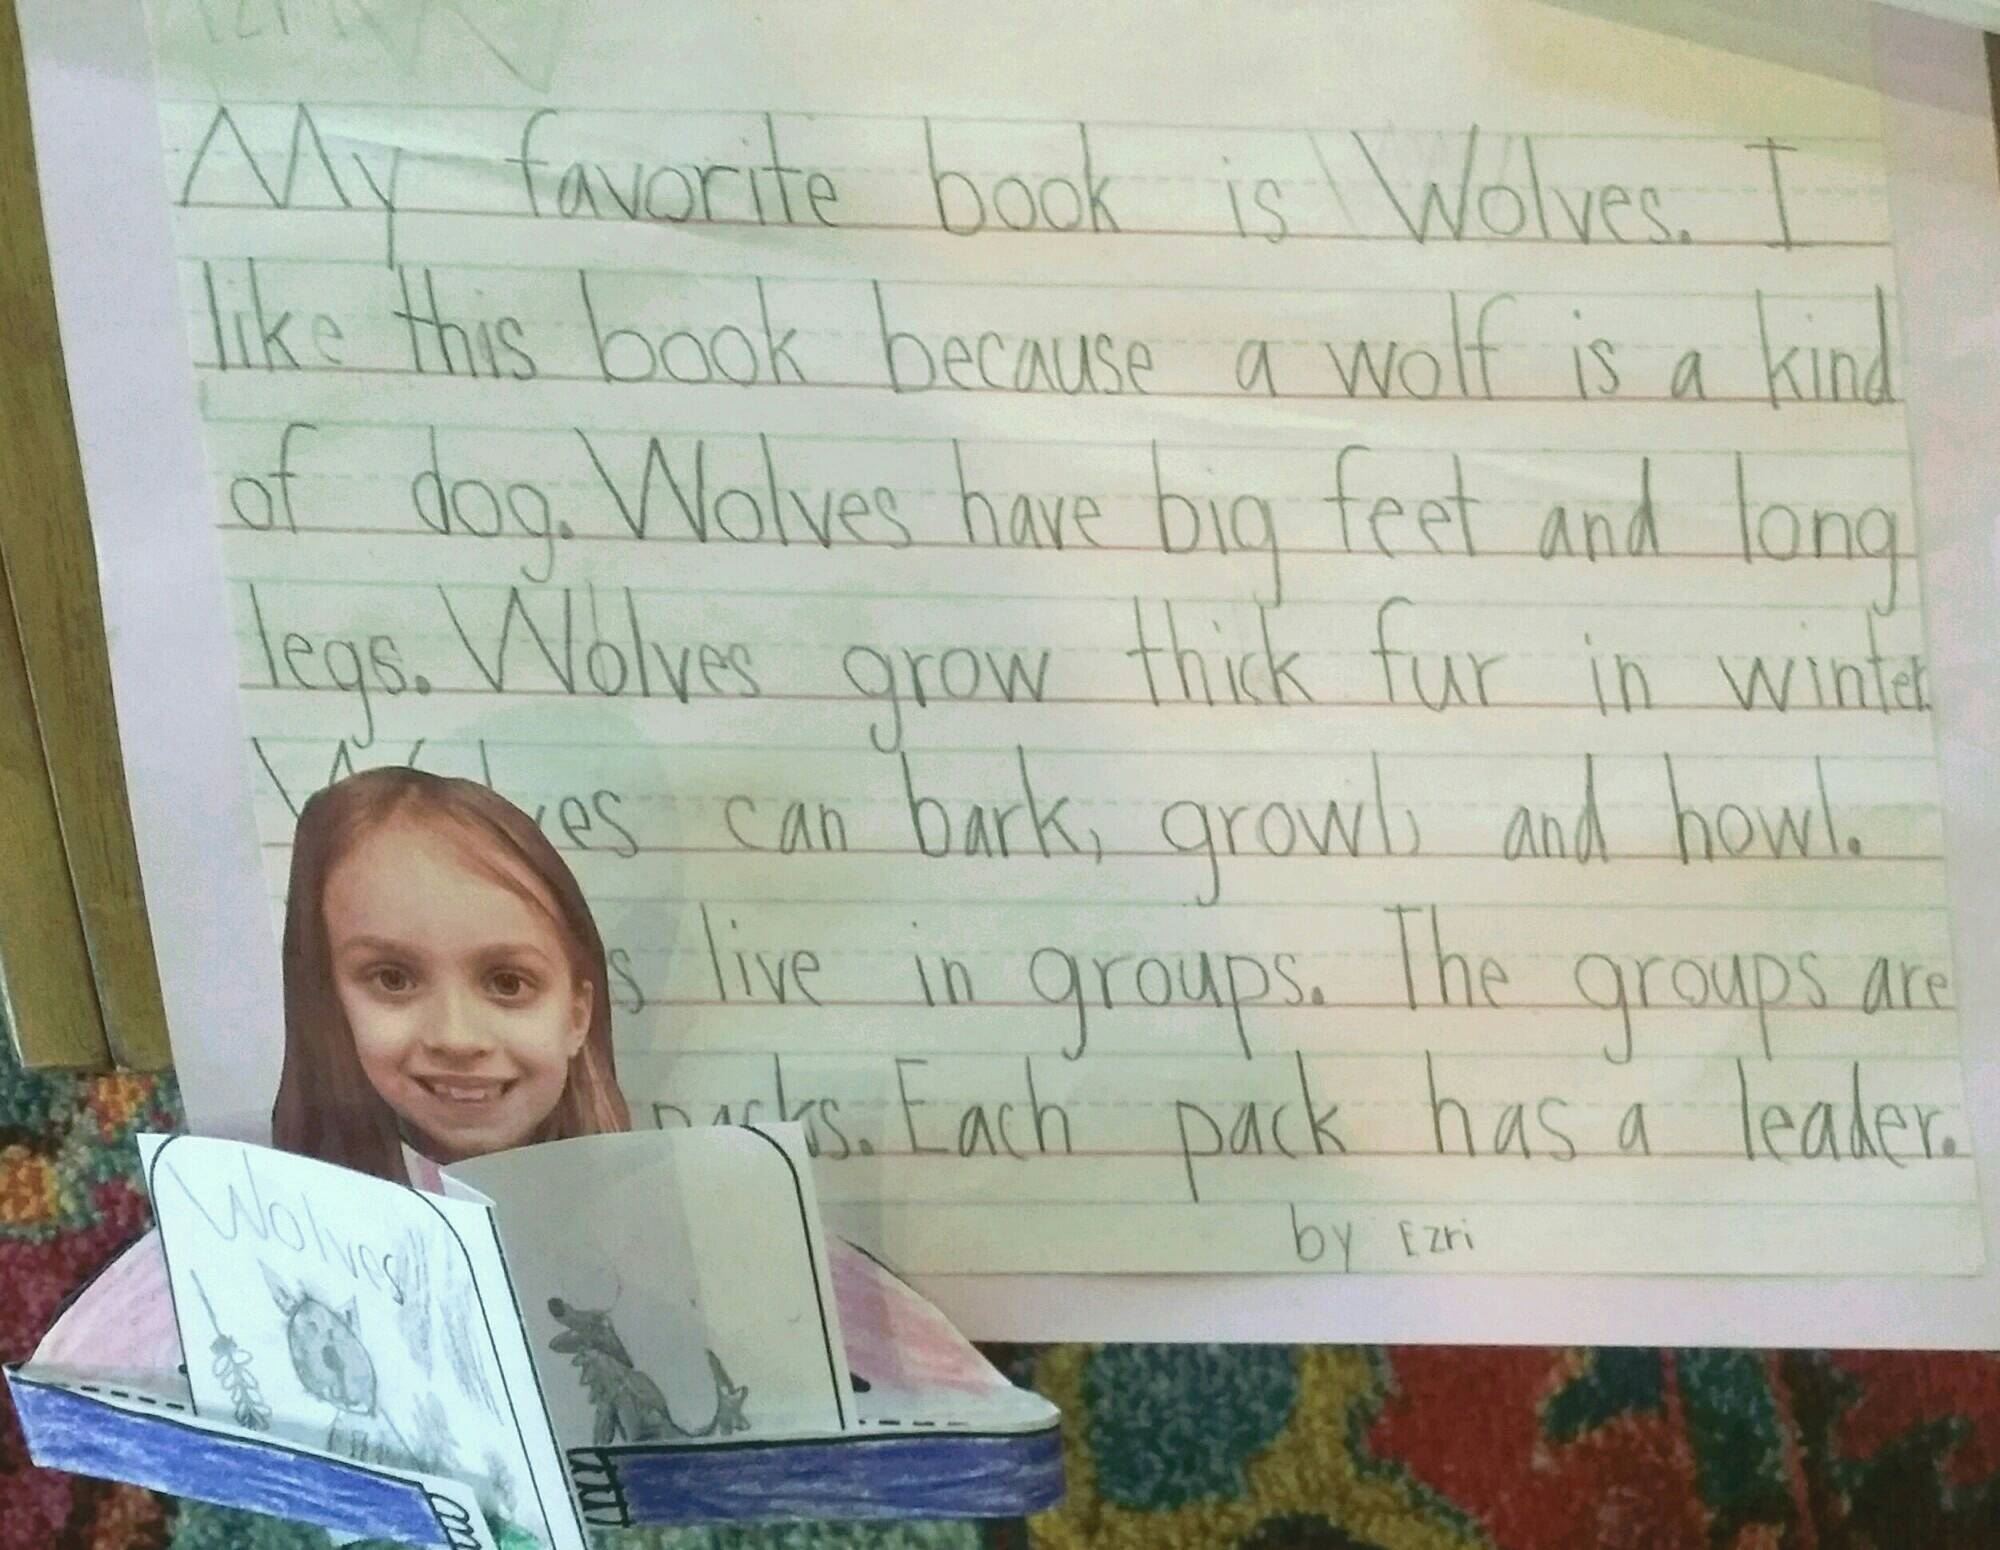 My favorite book is Wolves. I
like this book because a wolf is a kind
of dog. Wolves have big feet and long
legs. Wolves grow thick fur in winter.
can bark, growl, and howl.
live in groups. The groups are
packs. Each pack has a leader.
by Ezri
Wolves